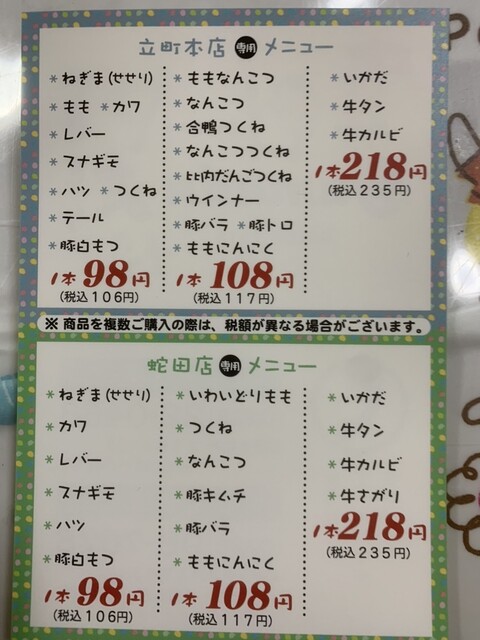 立町本店 専用 メニュー
*ねぎま(せせり)
*もも *カワ
*レバー
*スナギモ
*ハツ *つくね
*テール
*豚白もつ
1本98円
(税込106円)
*ももなんこつ
*なんこつ
*合鴨つくね
*なんこつつくね
*比内だんごつくね
*ウインナー
*豚バラ *豚トロ
*ももにんにく
1本108円
(税込117円)
*いかだ
*牛タン
*牛カルビ
1本218円
(税込235円)
※ 商品を複数ご購入の際は、税額が異なる場合がございます。
蛇田店 専用 メニュー
*ねぎま(せせり)
*カワ
*レバー
*スナギモ
*ハツ
*豚白もつ
1本98円
(税込106円)
*いわいどりもも
*つくね
*なんこつ
*豚キムチ
*豚バラ
*ももにんにく
1本108円
(税込117円)
*いかだ
*牛タン
*牛カルビ
*牛さがり
1本218円
(税込235円)